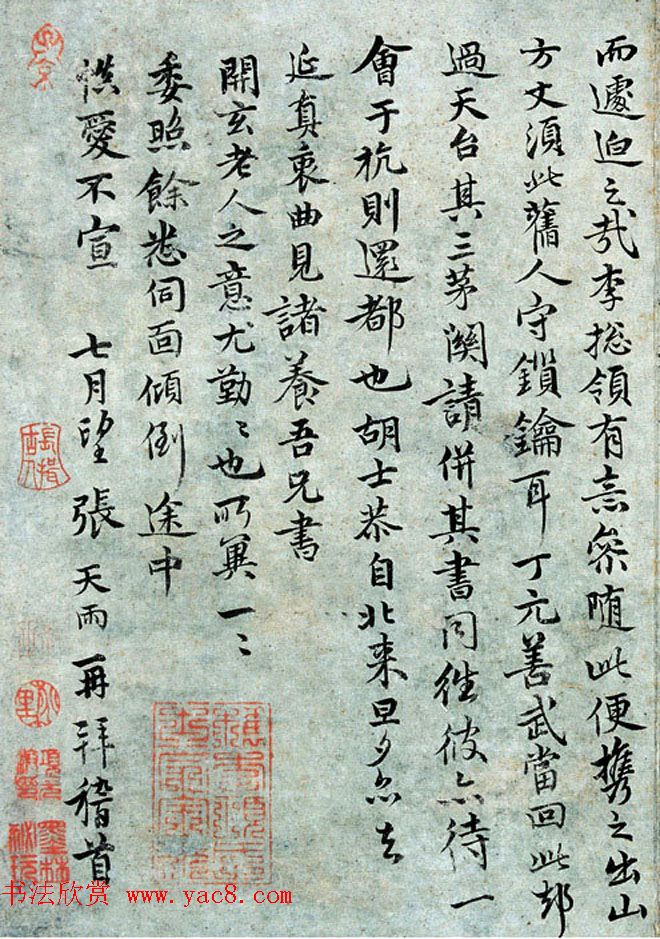 而遽迫之哉李揔領有意參随此便携之出山
方丈須此舊人守鎖鑰耳丁元善武當回此却
過天台其三茅闕請併其書同徃彼亦待一
會于杭則還都也胡士恭自北来旦夕亦去
延真衷曲見諸養吾兄書
開玄老人之意尤勤〻也所冀一〻
委照餘悉伺面傾倒途中
愛不宣 七月望 張天雨 再拜稽首
书法欣赏 www.yac8.com